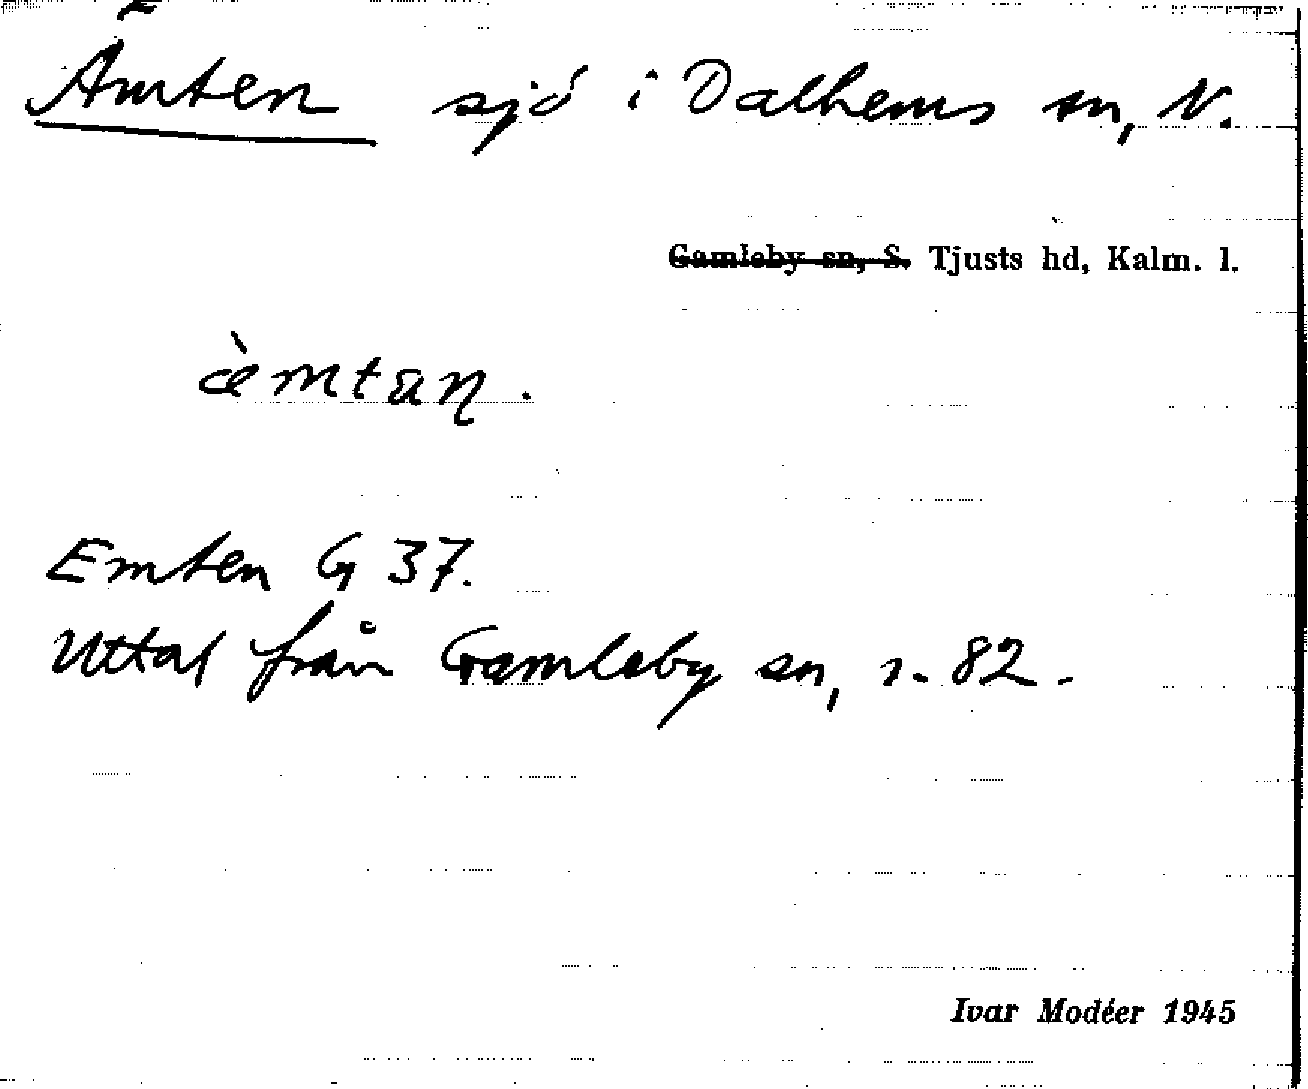 Ämten sjö i Dalhems sn, N.
Gamleby sn, S. Tjusts hd, Kalm. l.
æ̀mtan.
Emten G 37.
Uttal från Gamleby sn, s. 82.
Ivar Modéer 1945